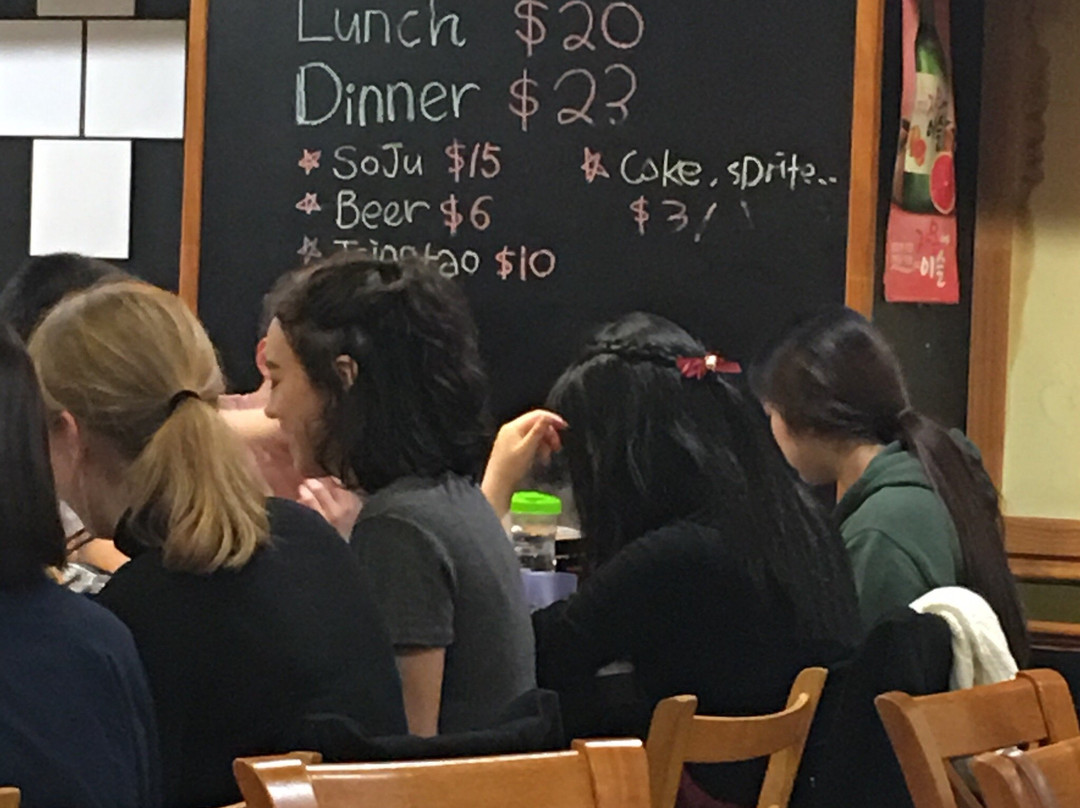 Lunch $20
Dinner $23
SoJu $15
Coke, sprite..
Beer $6
$3
Tsingtao $10
이슬
이슬